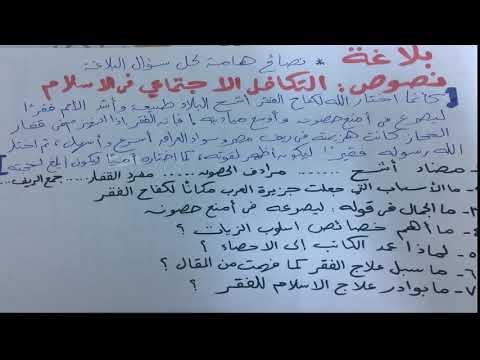 بلاغة * نصائح هامة لحل سؤال البلاغة
نصوص: التكافل الاجتماعى فى الاسلام
[كأنما اختار الله لكفاح الفقر أشح البلاد طبيعة وأشد الأمم فقرًا
ليصرعه فى أمنع حصونه وأوسع ميادينه، فإن الفقر إذا انهزم فى قفار
الحجاز كانت هزيمته فى ريف مصر وسواد العراق أسرع وأسهل، ثم اختار
الله رسوله فقيرًا ليكون أظهر لقوته، كما اختاره أميًا ليكون أبلغ لحجته]
١- مضاد أشح ...... مرادف الحصون ..... مفرد القفار ..... جمع الريف ...
٢- ما الأسباب التى جعلت جزيرة العرب مكانًا لكفاح الفقر
٣- ما الجمال فى قوله: ليصرعه فى أمنع حصونه
٤- ما أهم خصائص أسلوب الزيات؟
٥- لماذا عمد الكاتب إلى الاحصاء؟
٦- ما سبل علاج الفقر كما فهمت من المقال؟
٧- ما بوادر علاج الاسلام للفقر؟